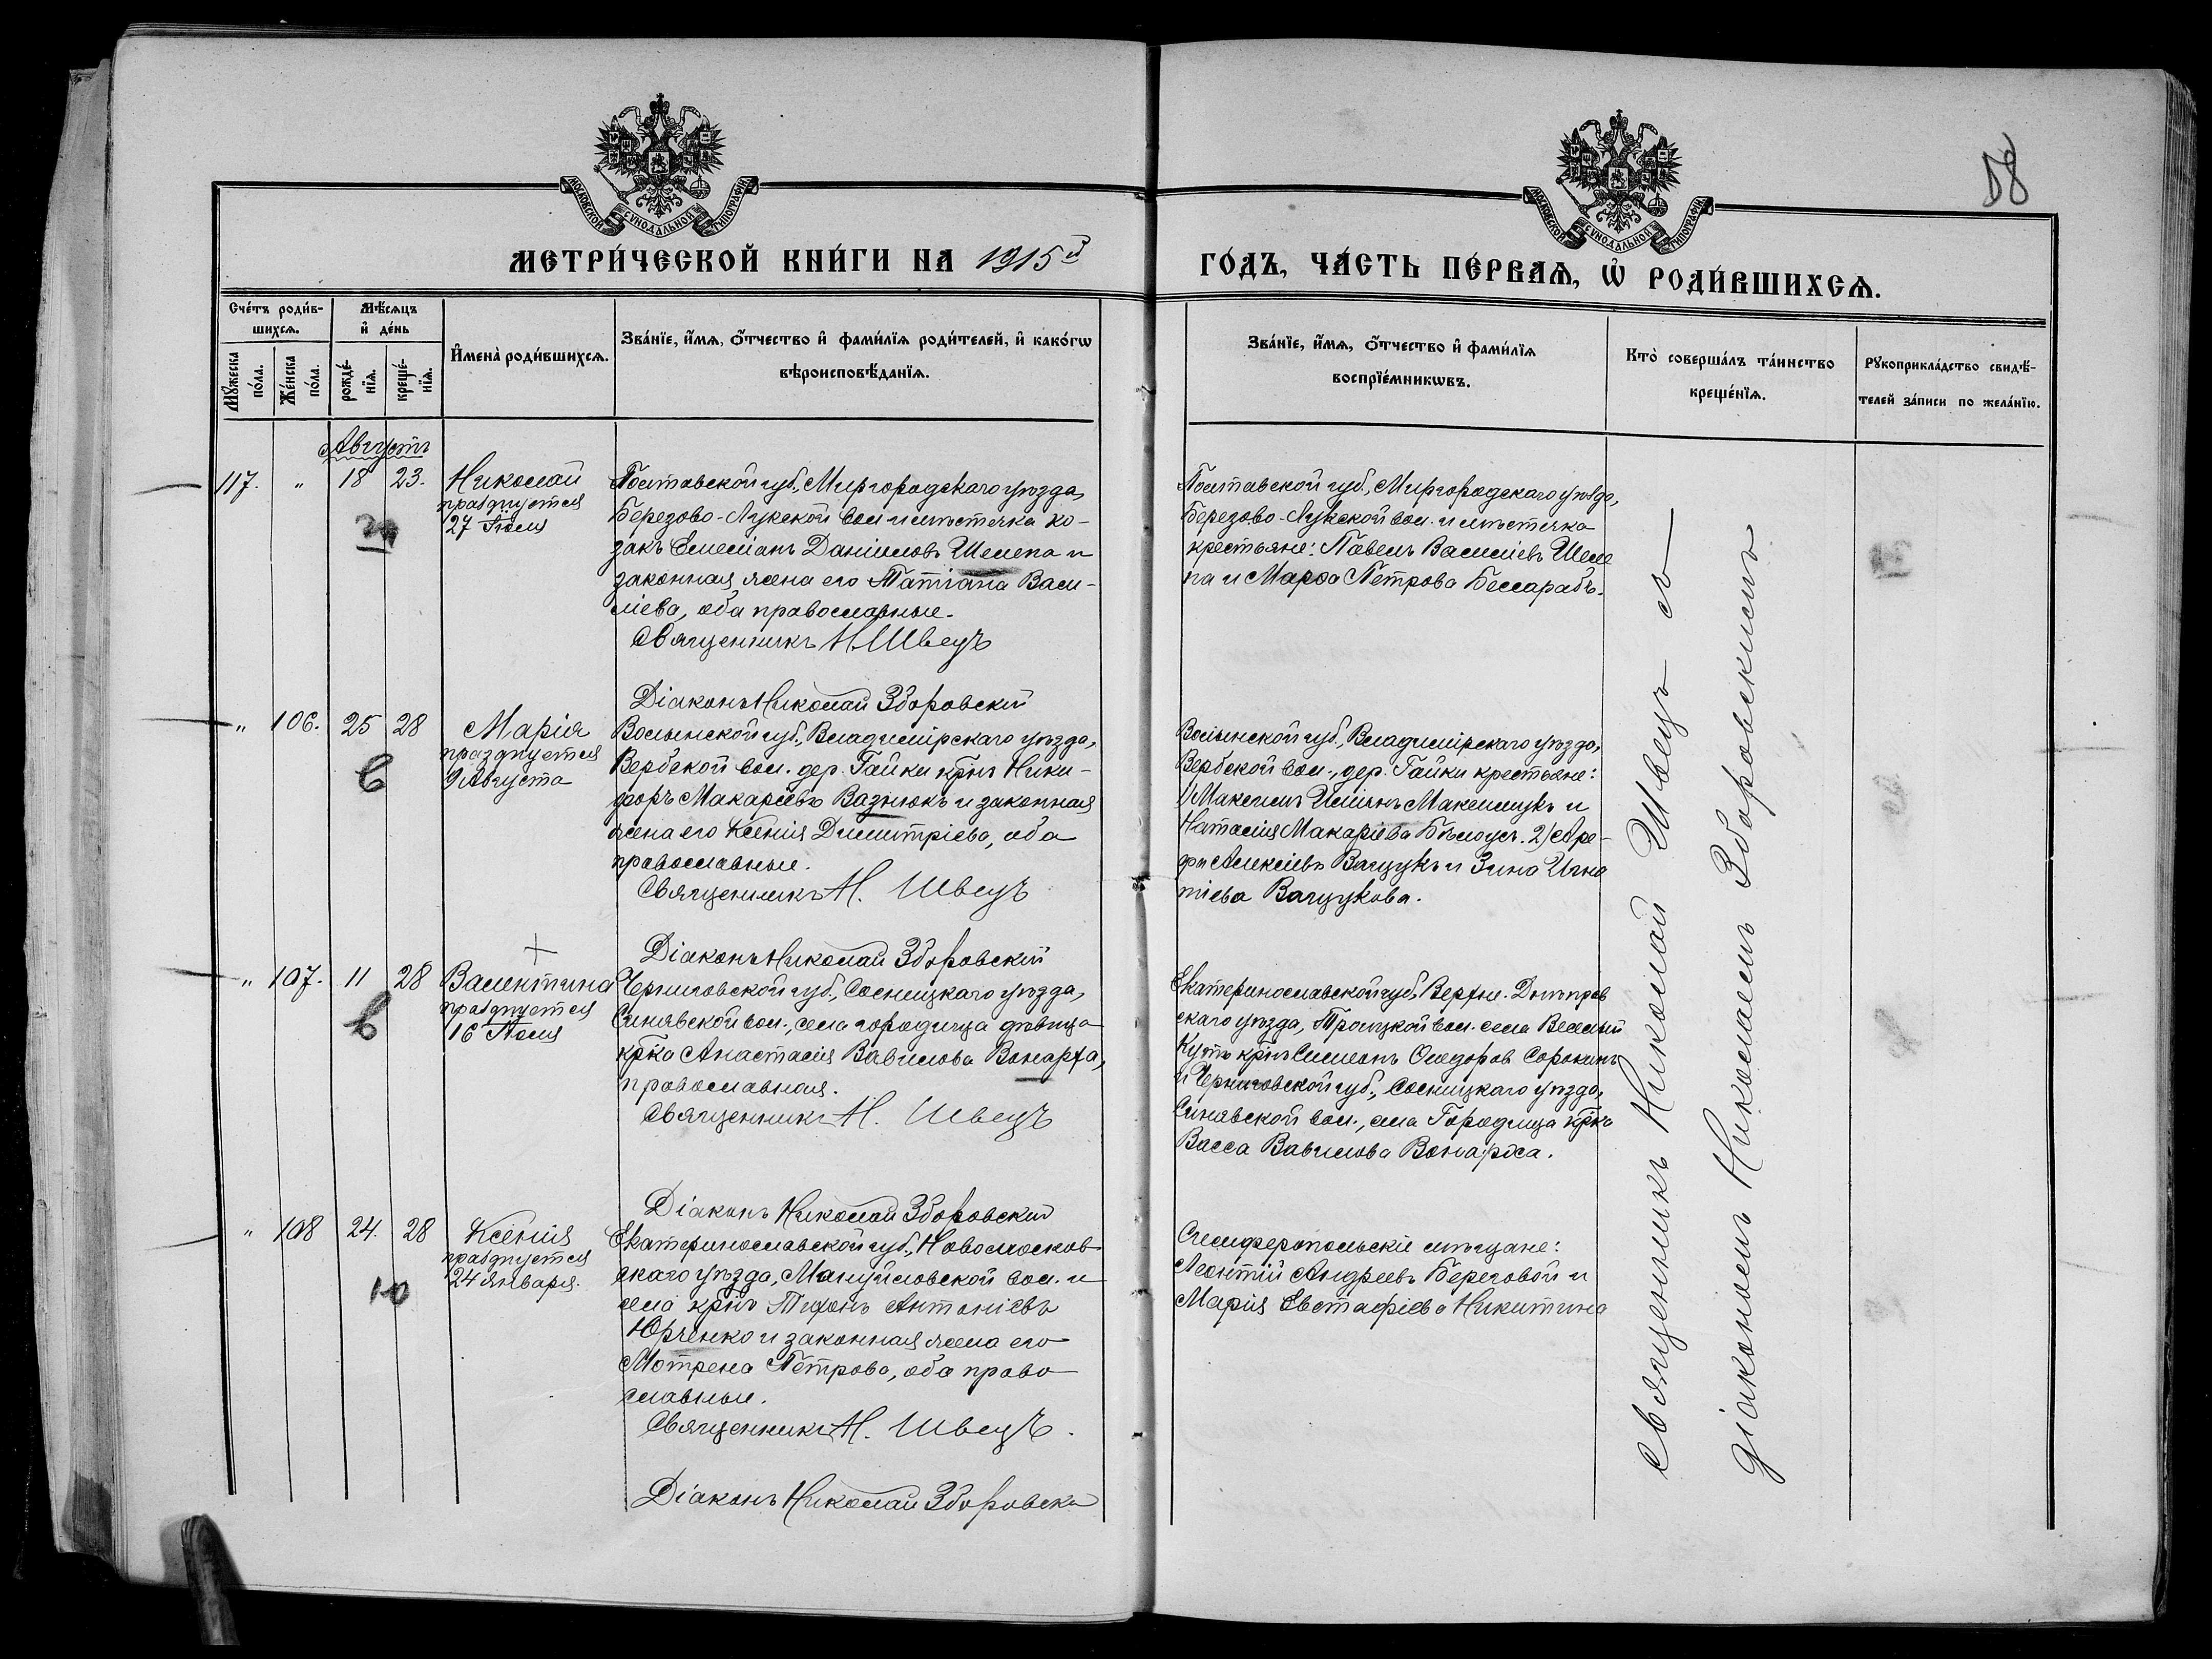 58
МОСКОВСКОЙ СѴНОДАЛЬНОЙ ТИПОГРАФІИ
МОСКОВСКОЙ СѴНОДАЛЬНОЙ ТИПОГРАФІИ
МЕТРИ́ЧЕСКОЙ КНИ́ГИ НА 1915й
ГО́ДЪ, ЧА́СТЬ ПЕ́РВАѦ, Ѡ҆ РОДИ́ВШИХСѦ.
Сче́тъ роди́в-
шихсѧ.
Мѣ́сѧцъ
и҆ де́нь
Мꙋ́жеска
по́ла.
Же́нска
по́ла.
рожде́-
нїѧ.
креще́-
нїѧ.
И҆мена̀ роди́вшихсѧ.
Зва́нїе, и҆́мѧ, ѻ҆́тчество и҆ фами́лїѧ роди́телей, и҆ како́гѡ
вѣроисповѣ́данїѧ.
Зва́нїе, и҆́мѧ, ѻ҆́тчество и҆ фами́лїѧ
воспрїе́мникѡвъ.
Кто̀ соверша́лъ та́инство
креще́нїѧ.
Рꙋкоприкла́дство свидѣ́-
телей за́писи по жела́нїю.
Августъ
117. " 18 23. Николай
празднуется
27 Іюля
Полтавской губ., Миргородскаго уѣзда,
Березово-Лукской вол. и мѣстечка ко-
закъ Емеліанъ Даніиловъ Шелепа и
законная жена его Татіана Васи-
ліева, оба православные.
Священникъ Н. Швецъ
Діаконъ Николай Зборовскій
Полтавской губ., Миргородскаго уѣзда,
Березово-Лукской вол. и мѣстечка
крестьяне: Павелъ Василіевъ Шеле
па и Марѳа Петрова Бессарабъ.
" 106. 25 28 Марія
празднуется
9 Августа
в
Волынской губ., Владимірскаго уѣзда,
Вербской вол. дер. Гайки крнъ Ники-
форъ Макаріевъ Вазнюкъ и законная
жена его Ксенія Димитріева, оба
православные.
Священникъ Н. Швецъ
Діаконъ Николай Зборовскій
Волынской губ., Владимірскаго уѣзда,
Вербской вол., дер. Гайки крестьяне:
1) Максимъ Максимукъ и
Наталія Макаріева Бѣлоусъ. 2)
Алексіевъ Ващукъ и Зина Игна
тіева Ващукова.
" 107. 11 28 Валентина
празднуется
16 Іюля
в
Черниговской губ., Сосницкаго уѣзда,
Синявской вол., села городища дѣвица
крка Анастасія Вавилова Вонарха,
православная.
Священникъ Н. Швецъ
Діаконъ Николай Зборовскій
Екатеринославской губ., Верхне-Днѣпров
скаго уѣзда, Троицкой вол. села Веселый
Кутъ крнъ Симеонъ Ѳеодоров Сорокинъ
и Черниговской губ., Сосницкаго уѣзда,
Синявской вол., села Городища крка
Васса Вавилова Вонарха.
" 108 24. 28 Ксенія
празднуется
24 Января.
ю
Екатеринославской губ., Новомосков
скаго уѣзда, Мануйловской вол. и
села крнъ Тихонъ Антоніевъ
Юрченко и законная жена его
Мотрена Петрова, оба право
славные.
Священникъ Н. Швецъ.
Діаконъ Николай Зборовскій
Симферопольскіе мѣщане:
Леонтій Андреевъ Береговой и
Марія Евстафіева Никитина
Священникъ Николай Швецъ съ
діакономъ Николаемъ Зборовскимъ